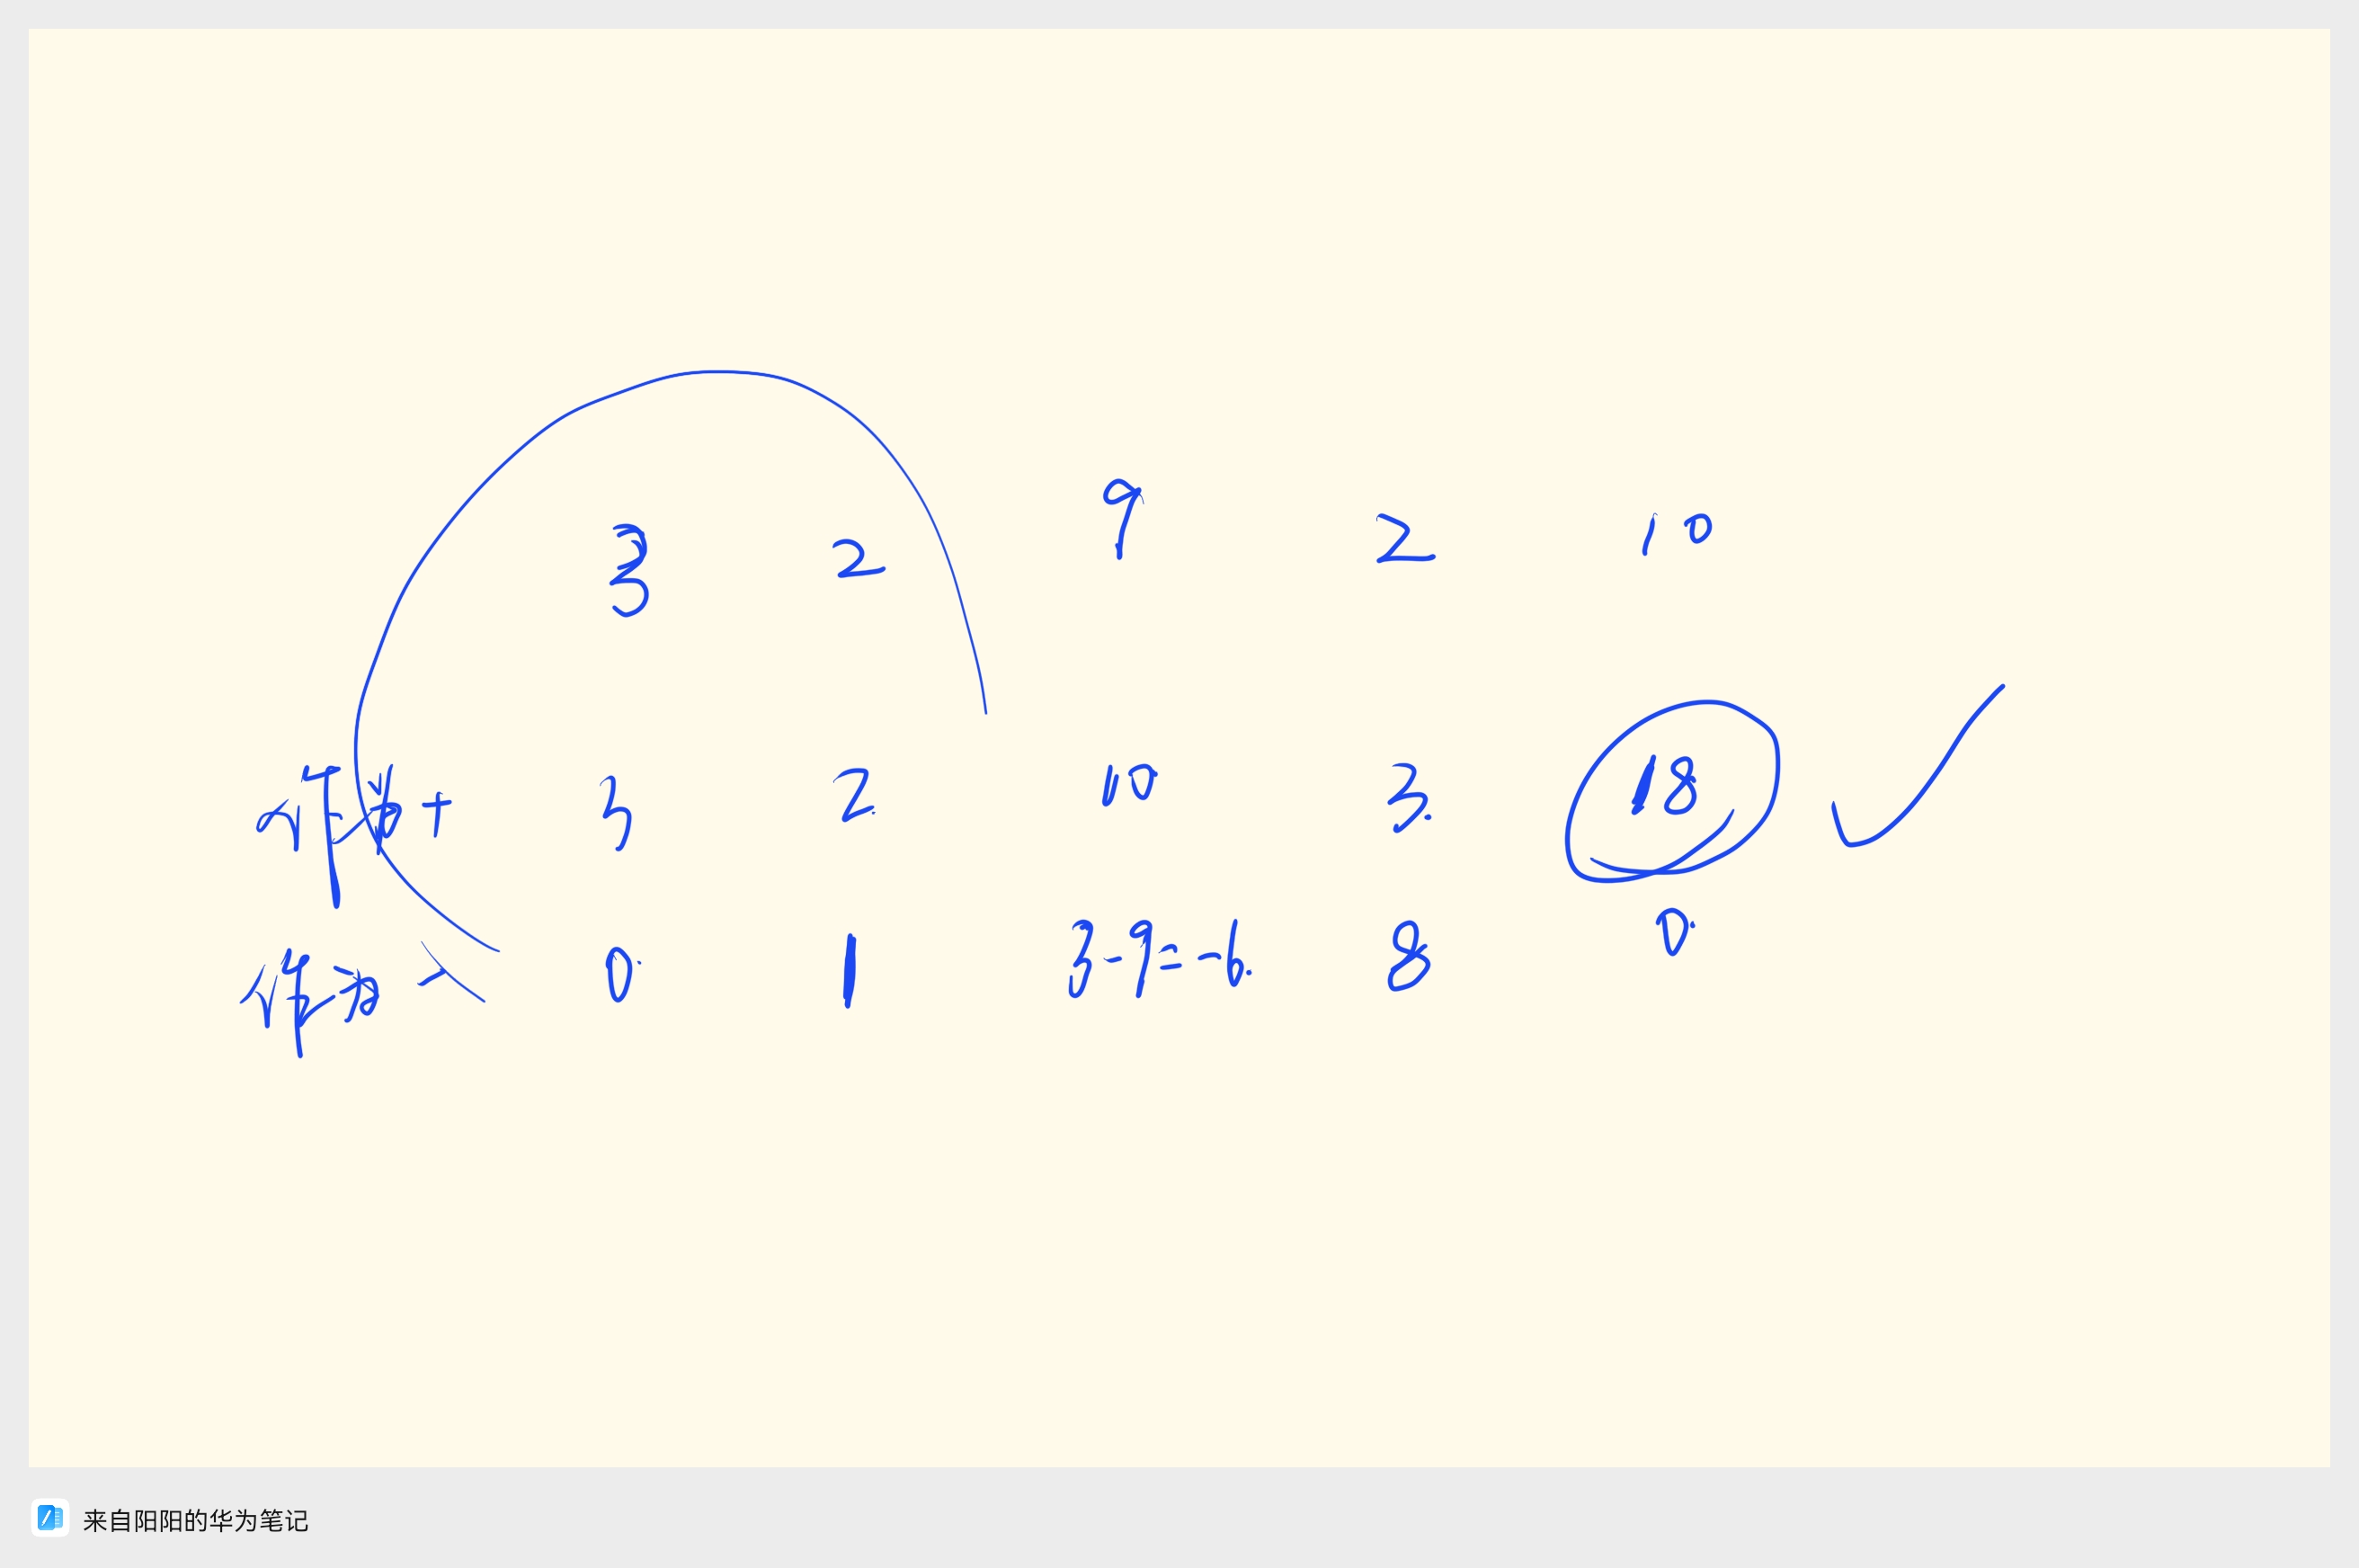 3 2 9 2 10
+ 3 2. 10 3. 18
0. 1 3-9=-6. 8 0.
来自阳阳的华为笔记